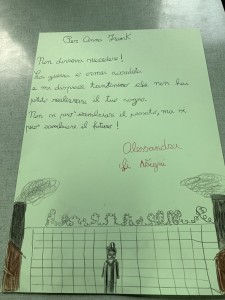 Per Anna Frank
Non doveva succedere!
La guerra è ormai accaduta
e mi dispiace tantissimo che non hai
potuto realizzare il tuo sogno.
Non si può cambiare il passato, ma si
può cambiare il futuro!
Alessandra
Di